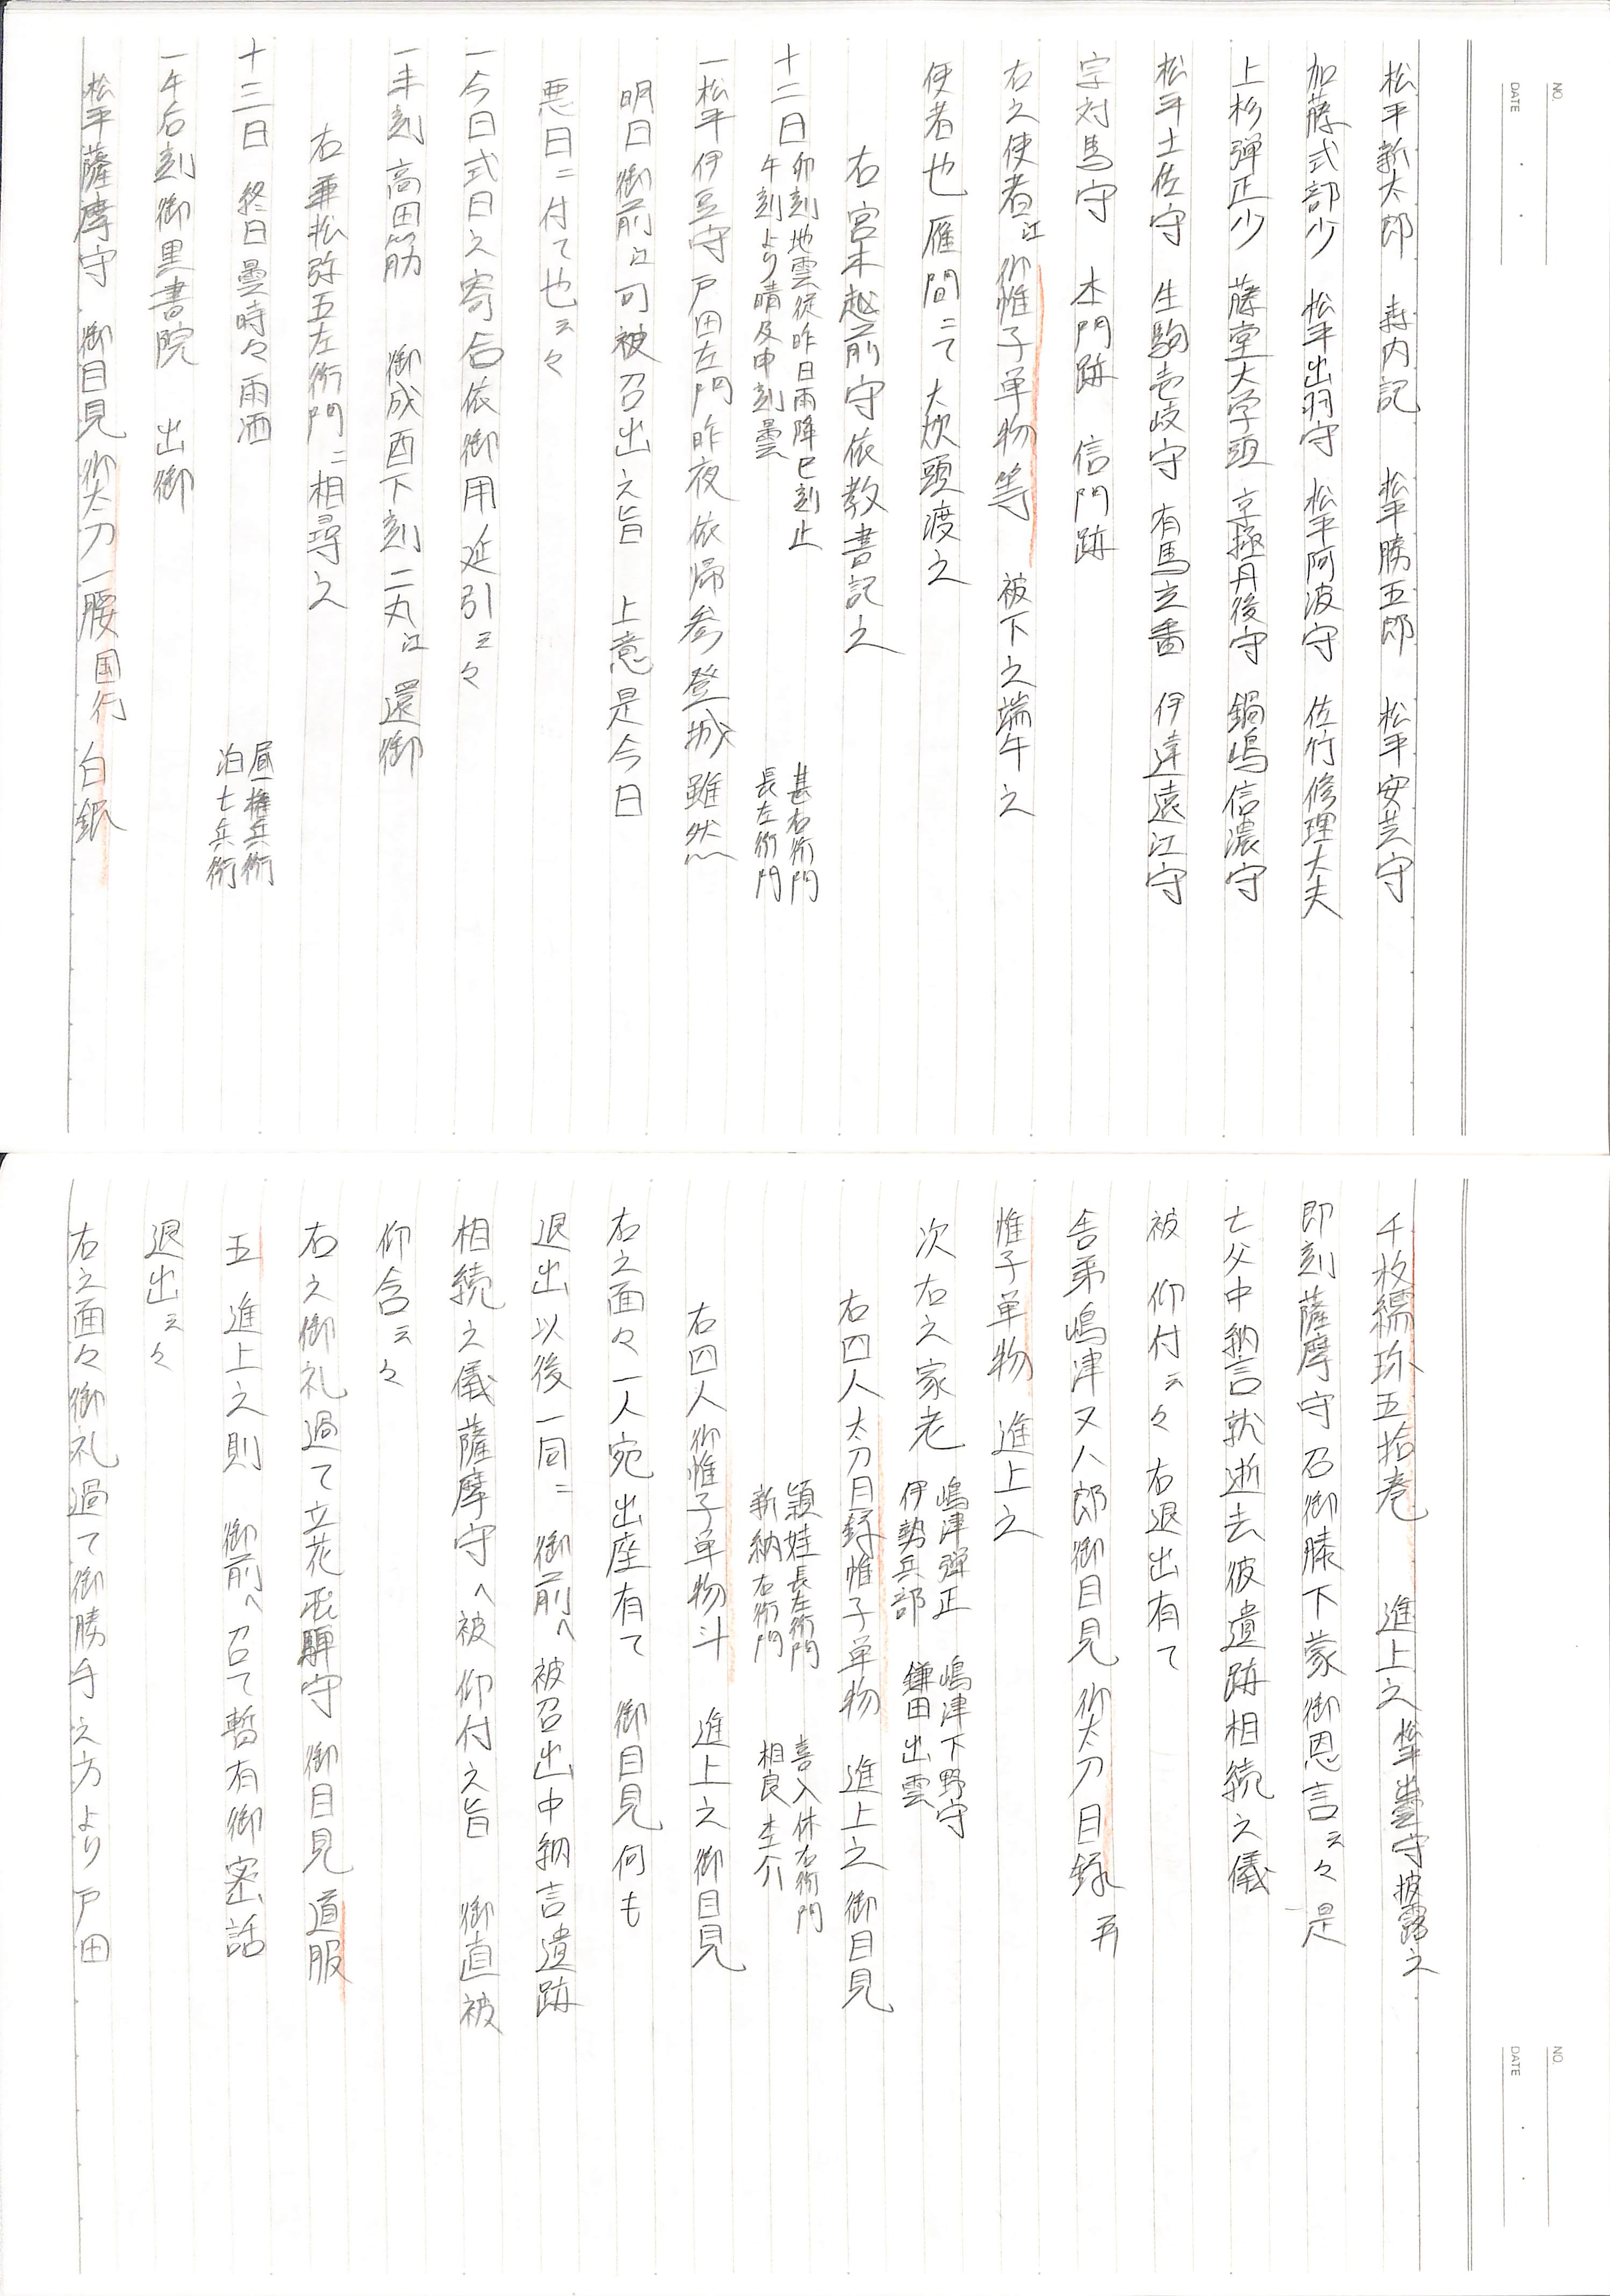 NO.
DATE
松平新太郎 森内記 松平勝五郎 松平安芸守
加藤式部少 松平出羽守 松平阿波守 佐竹修理大夫
上杉弾正少 藤堂大学頭 京極丹後守 鍋嶋信濃守
松平土佐守 生駒壱岐守 有馬玄番 伊達遠江守
宗対馬守 本門跡 信門跡
右之使者江 御帷子単物等 被下之端午之
使者也雁間ニて大炊頭渡之
右宮木越前守依教書記之
十二日 卯刻地雲従昨日雨降巳刻止 甚右衛門
午刻より晴及申刻曇 長左衛門
一松平伊豆守戸田左門昨夜依帰参登城雖然
明日御前江可被召出之旨 上意是今日
悪日ニ付て也云々
一今日式日之寄合依御用延引云々
一未刻 高田筋 御成酉下刻二丸江 還御
右兼松弥五左衛門ニ相尋之
十三日 終日曇時々雨洒 昼 権兵衛
泊 七兵衛
一午后刻御黒書院 出御
松平薩摩守 御目見 御太刀一腰国行 白銀
NO.
DATE
千枚繻珍五拾巻 進上之 松平 守披露之
即刻薩摩守 召御膝下蒙御恩言云々是
亡父中納言就逝去彼遺跡相続之儀
被 仰付云々右退出有て
舎弟嶋津又八郎御目見 御太刀目録 并
帷子単物 進上之
次右之家老 嶋津弾正 嶋津下野守
伊勢兵部 鎌田出雲
右四人太刀目録帷子単物 進上之 御目見
頴娃長左衛門 喜入休右衛門
新納右衛門 相良杢介
右四人御帷子単物斗 進上之御目見
右之面々一人宛出座有て 御目見何も
退出以後一同ニ 御前へ被召出中納言遺跡
相続之儀薩摩守へ被 仰付之旨 御直被
仰含云々
右之御礼過て立花飛騨守 御目見 道服
五 進上之則 御前へ召て暫有御密話
退出云々
右之面々御礼過て御勝手之方より戸田